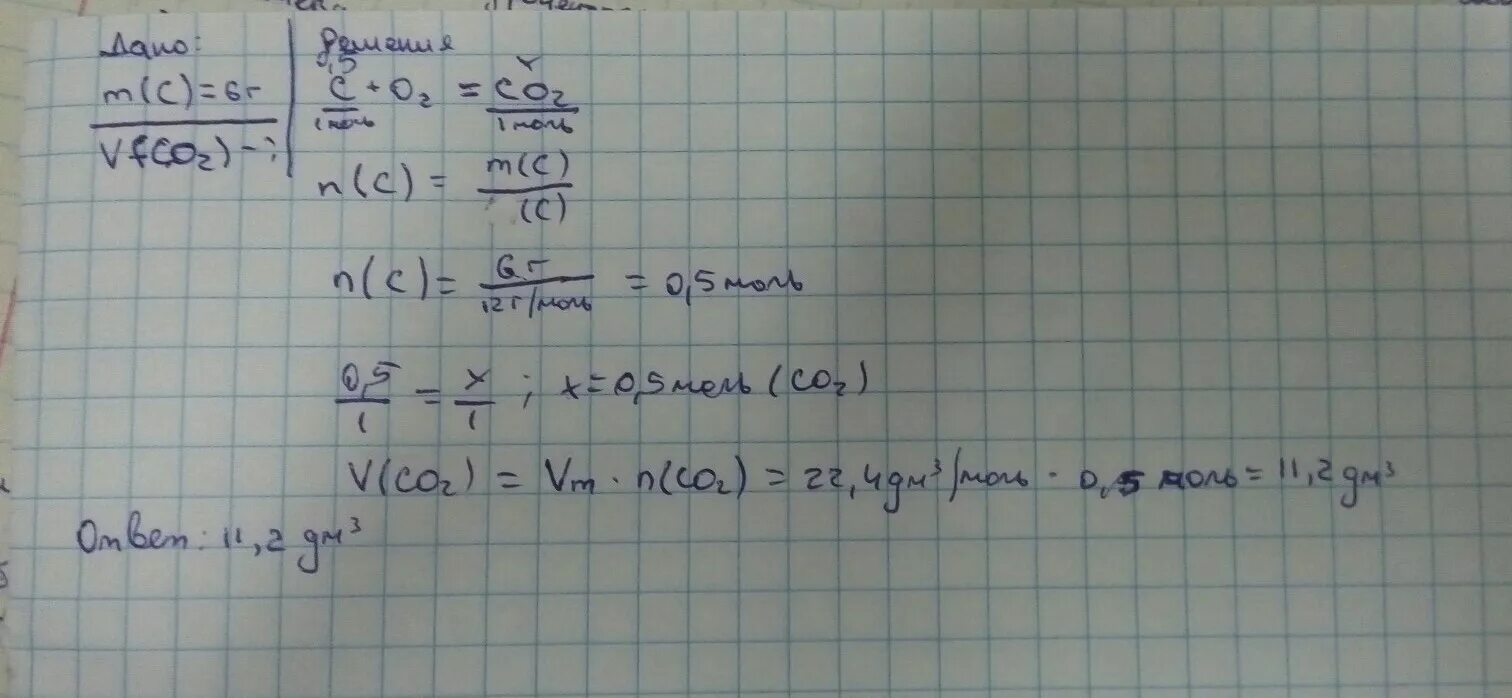 Дано:
m(C)=6г
V(CO₂)-?
Решения
0,5 x
C + O₂ = CO₂
1моль 1моль
n(C) = m(C) / (C)
n(C) = 6г / 12г/моль = 0,5моль
0,5/1 = x/1 ; x=0,5моль (CO₂)
V(CO₂) = Vm · n(CO₂) = 22,4дм³/моль · 0,5 моль = 11,2дм³
Ответ: 11,2 дм³